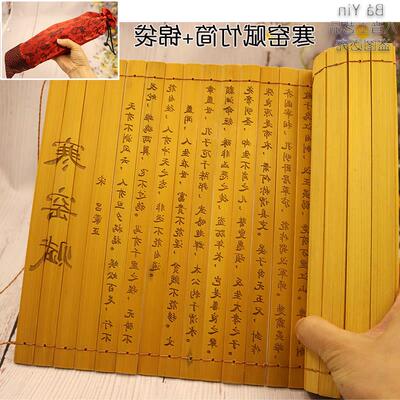 Bá Yín
盗图必究
寒窑赋竹简+锦袋
寒窑赋
宋 吕蒙正
天有不测风云,人有旦夕祸福。蜈蚣百足,行不
及蛇,雄鸡两翼,飞不过鸦。马有千里之程,无骑不
能自往,人有冲天之志,非运不能自通。
盖闻,人生在世,富贵不能淫,贫贱不能移。文
章盖世,孔子厄于陈邦,武略超群,太公钓于渭水。
颜渊命短,殊非凶恶之徒,盗跖年长,岂是善良之辈。
尧帝明圣,却生不肖之儿,瞽叟愚顽,反生大孝之子。
张良原是布衣,萧何称谓县吏。晏子身无五尺,封作
齐国宰相,孔明卧居草庐,能作蜀汉军师。楚霸虽雄,